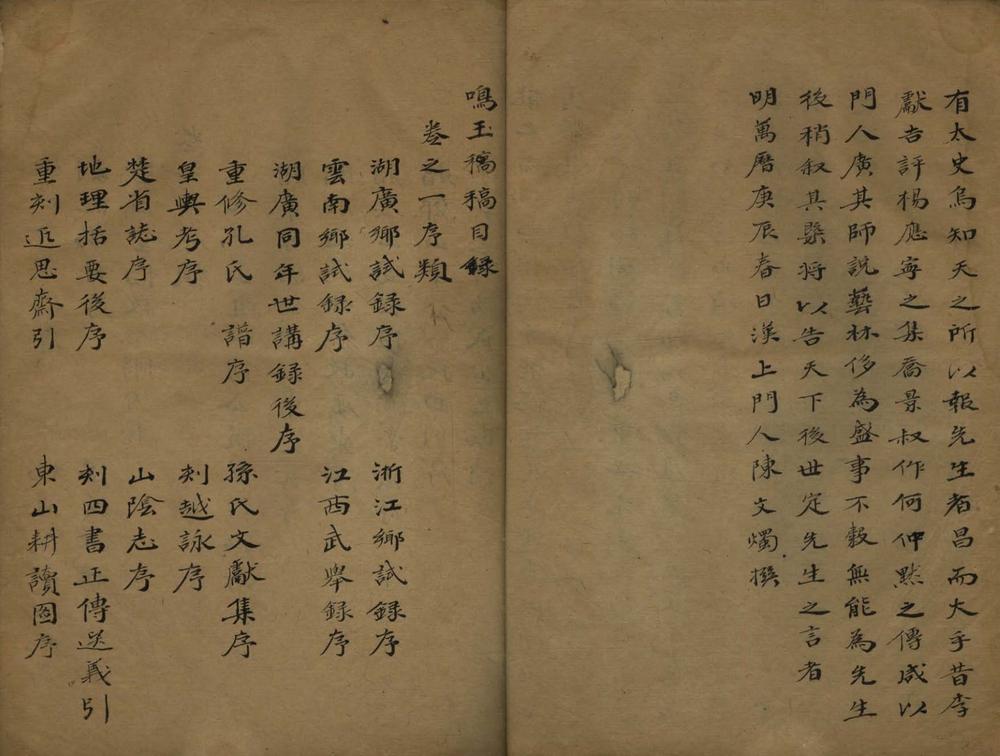 有太史烏知天之所以報先生者昌而大乎昔李
獻吉評楊應寧之集喬景叔作何仲黙之傳咸以
門人廣其師説藝林侈為盛事不穀無能為先生
後稍叙其槩将以告天下後世定先生之言者
明萬曆庚辰春日漢上門人陳文燭撰
鳴玉稿稿目録
卷之一序類
湖廣鄉試録序
浙江鄉試録序
雲南鄉試録序
江西武舉録序
湖廣同年世講録後序
重修孔氏譜序
孫氏文獻集序
皇輿考序
刻越詠序
楚省誌序
山陰志序
地理括要後序
刻四書正傳送義引
重刻近思齋引
東山耕讀圖序